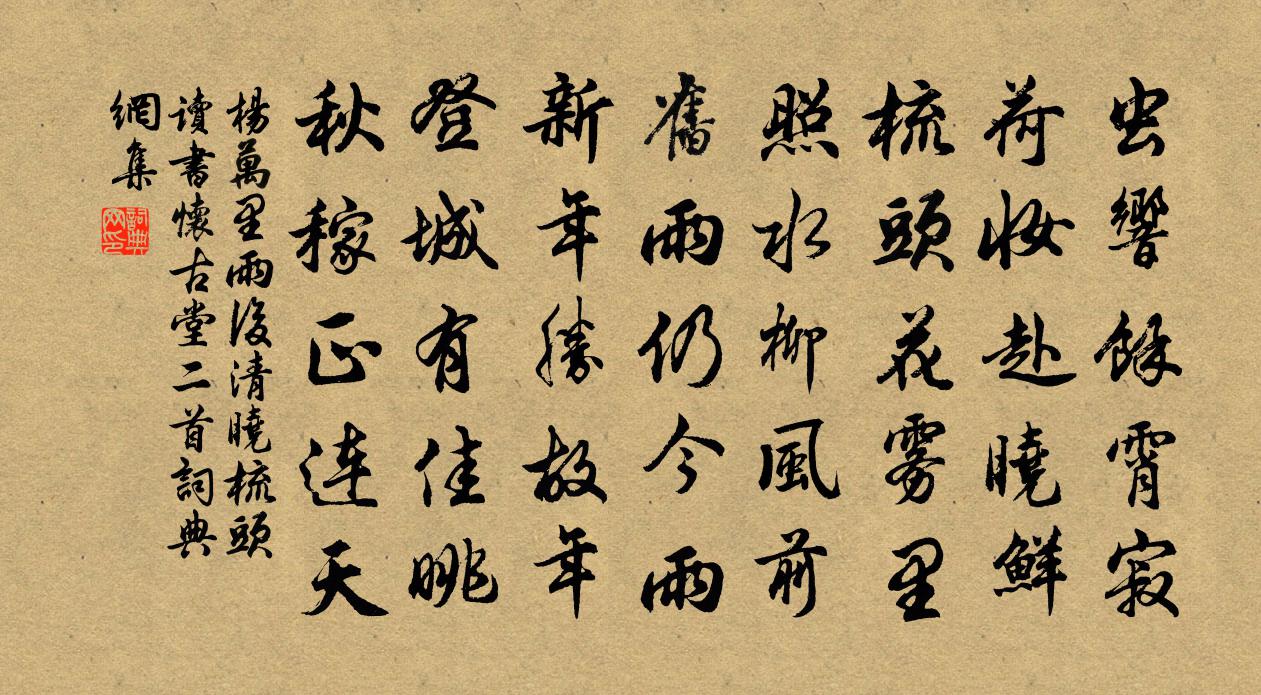 虫響餘霄寂
荷妝赴曉鮮
梳頭花雾里
照水柳風前
舊雨仍今雨
新年勝故年
登城有佳眺
秋稼正連天
楊萬里雨後清曉梳頭
讀書懷古堂二首詞典
網集
詞典
网印